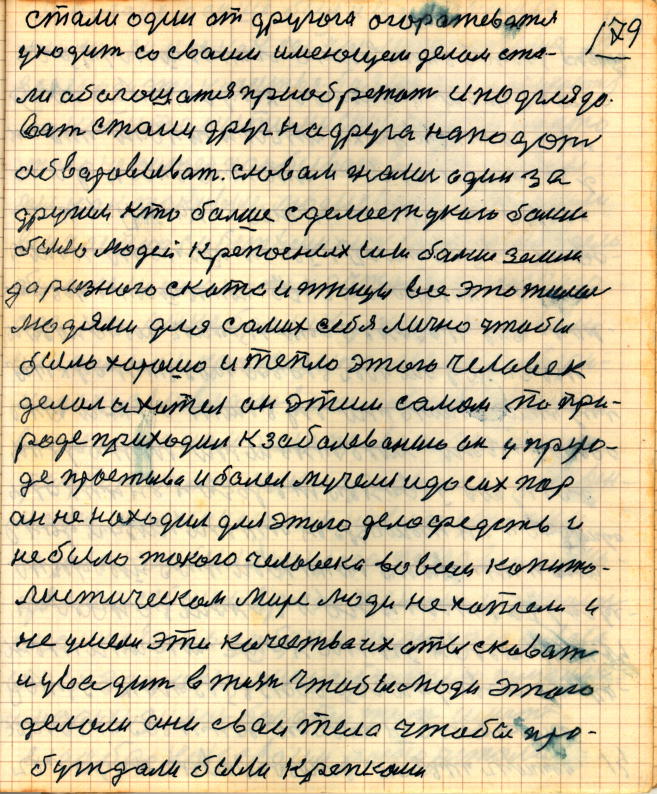 179
стали один от другога огораживатя
уходит со сваим имеющем делам ста-
ли абагощатя приобретат и подглядо-
ват стали друг на друга нападат
обваровыват. словам жали один за
другим кто балше сделает у каго балше
было людей крепосных или балше земли
да разного ската и птицы все это жили
людями для самих себя лично чтобы
было хорошо и тепло этого человек
делал а хател он этим самам по при-
роде приходил к забалеванию он у приро-
де простывал и балел мучелся и до сих пор
он не находил для этого дела средств и
не было такого человека во всем капита-
листическом мире люди не хател и
не умели эти качества их отыскават
и увадит в жизн чтобы люди этого
делали они сваи тела чтобы про-
буждали были крепкоми